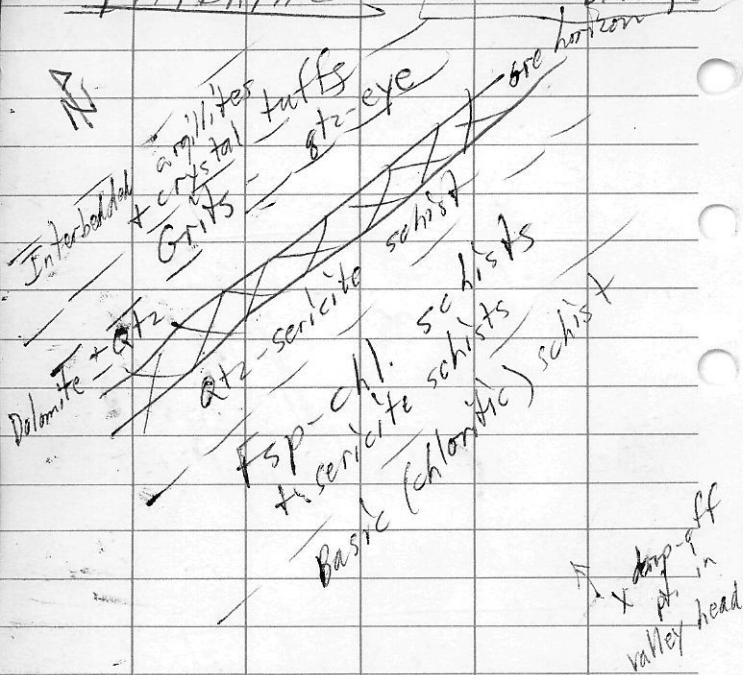 N
ore horizon
Interbedded argillites
+ crystal tuffs
Grits qtz-eye
Dolomite + Qtz
Qtz-sericite schist
Fsp-chl. schists
+ sericite schists
Basic (chloritic) schist
x drop-off
pt. in
valley head